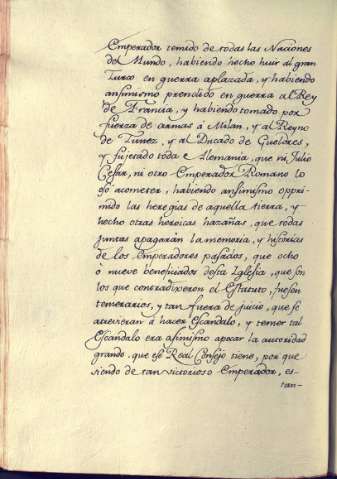 Emperador temido de todas las Naciones
del Mundo, habiendo hecho huir al gran
Turco en guerra aplazada, y habiendo
ansimismo prendido en guerra al Rey
de Francia, y habiendo tomado por
fuerza de armas á Milan, y al Reyno
de Tunez, y al Ducado de Gueldres,
y sujetado toda Alemania, que ni Julio
Cesar, ni otro Emperador Romano lo
osó acometer, habiendo ansimismo oppri-
mido las heregias de aquella tierra, y
hecho otras heroicas hazañas, que todas
juntas apagarán la memoria, y historias
de los Emperadores pasados, que ocho
ó nueve beneficiados desta Iglesia, que son
los que contradixeron el Estatuto, fuesen
temerarios, y tan fuera de juicio, que se
atrevieran á hacer Escandalo, y temer tal
Escandalo era asimismo apocar la autoridad
grande que ese Real Consejo tiene, por que
siendo de tan victorioso Emperador, es-
tan-